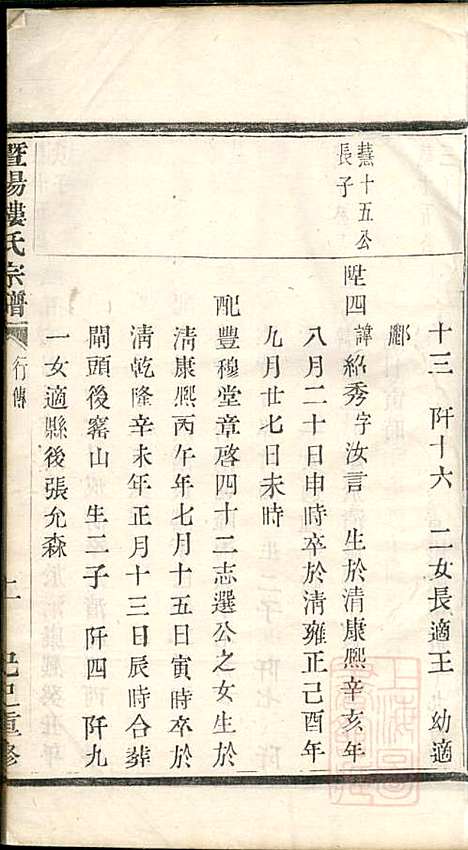 十三　阡十六　二女長適王　幼適
酈
蕙十五公
長子
陞四諱紹秀字汝言　生於清康熙辛亥年
八月二十日申時卒於清雍正己酉年
九月廿七日未時
配豐穆堂章啓四十二志選公之女生於
清康熙丙午年七月十五日寅時卒於
清乾隆辛未年正月十三日辰時合葬
閘頭後窰山　生二子　阡四　阡九
一女適縣後張允森
暨陽樓氏宗譜　行傳　二　己巳重修